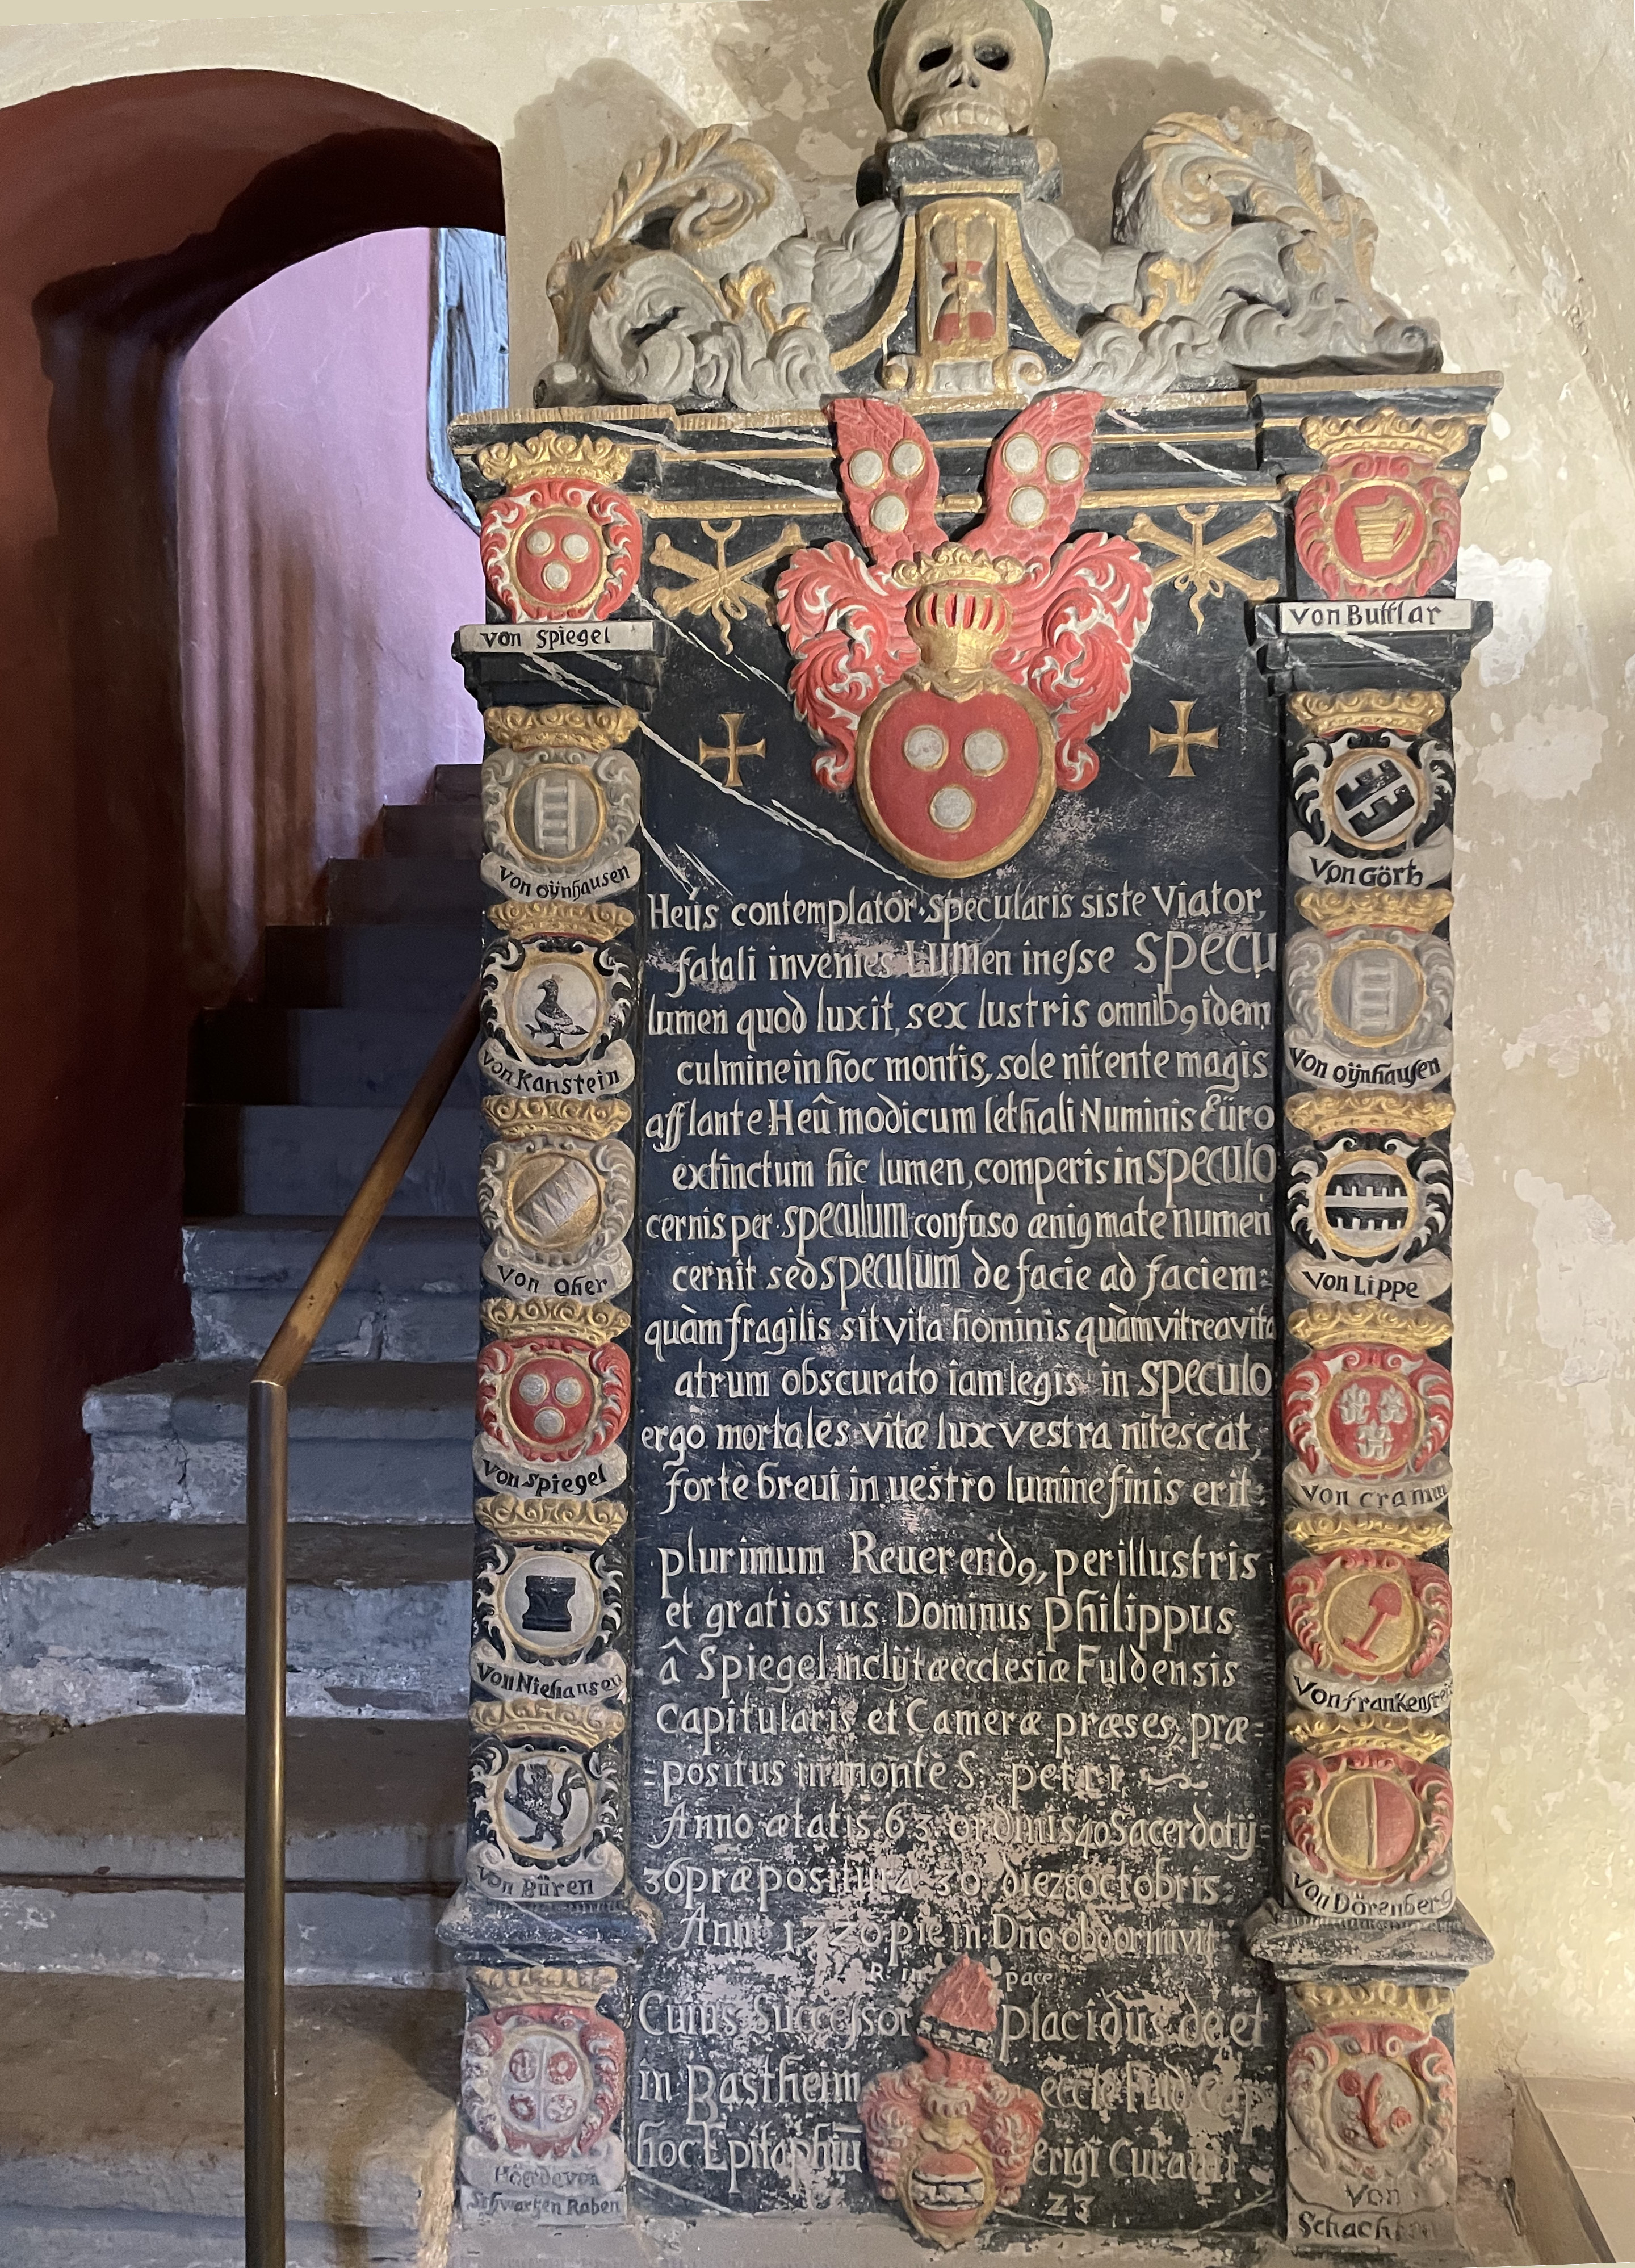 von Spiegel
von Buttlar
von oÿnhausen
Von Görtz
von Kanstein
von oÿnhausen
von Oher
Von Lippe
von Spiegel
von cramm
von Niehausen
von frankenstein
von Büren
von Dörenberg
Schwartzen Raben
Von
Heús contemplator specularis siste Viator,
fatali invenies LUMen ineſse SPECU
lumen quod luxit, sex lustris omnibꝯ idem
culmine in hoc montis, sole nitente magis
afflante Heû modicum lethali Numinis Eüro
extinctum hic lumen, comperis in SPECULO
cernis per SPECULUM confuso ænigmate numen
cernit sed SPECULUM de facie ad faciem:
quàm fragilis sit vita hominis quàm vitrea vita
atrum obscurato iam legis in SPECULO
ergo mortales vitæ lux vestra nitescat,
forte breui in uestro lumine finis erit:
plurimum Reuerendꝯ, perillustris
et gratiosus Dominus Philippus
â Spiegel inclÿtæ ecclesiæ Fuldensis
Capitularis et Cameræ præses, præ=
=positus in monte S. petri
Anno ætatis 63 ordinis 40 Sacerdotÿ=
36 præpositura 30 die 28 octobris
Anno 1720 pie in Dno obdormivit
R. in pace
Cuius Succeſsor Placidus de et
in Bastheim eccle Fuld Cap
hoc Epitaphiū erigi Curavit
23